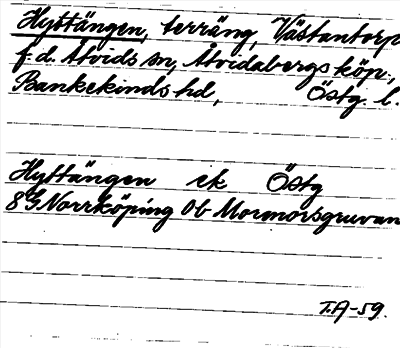 Hyttängen, terräng, Västantorp
f.d. Åtvids sn, Åtvidabergs köp.,
Bankekinds hd, Östg. l.
Hyttängen ek Östg
8G Norrköping 0b Mormorsgruvan
T.A-59.